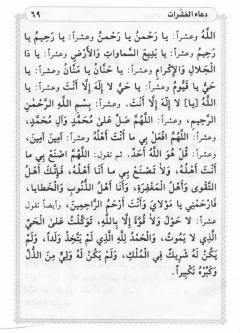 ٦٩ دعاء العشرات
اللَّهُ وعشراً: يَا رَحْمٰنُ يَا رَحْمٰنُ وعشراً: يَا رَحِيمُ يَا
رَحِيمُ وعشراً: يَا بَدِيعَ السَّمَاوَاتِ وَالأَرْضِ وعشراً: يَا ذَا
الْجَلالِ وَالإِكْرَامِ وعشراً: يَا حَنَّانُ يَا مَنَّانُ وعشراً: يَا
حَيُّ يَا قَيُّومُ وعشراً: يَا حَيُّ لا إِلٰهَ إِلَّا أَنْتَ وعشراً: يَا
اللَّهُ [يَا] لا إِلٰهَ إِلَّا أَنْتَ. وعشراً: بِسْمِ اللَّهِ الرَّحْمٰنِ
الرَّحِيمِ، وعشراً: اللَّهُمَّ صَلِّ عَلىٰ مُحَمَّدٍ وَآلِ مُحَمَّدٍ،
وعشراً: اللَّهُمَّ افْعَلْ بِي مَا أَنْتَ أَهْلُهُ وعشراً: آمِينَ آمِينَ،
وعشراً: قُلْ هُوَ اللَّهُ أَحَدٌ. ثم تقول: اللَّهُمَّ اصْنَعْ بِي مَا
أَنْتَ أَهْلُهُ، وَلاَ تَصْنَعْ بِي مَا أَنَا أَهْلُهُ، فَإِنَّكَ أَهْلُ
التَّقْوىٰ وَأَهْلُ الْمَغْفِرَةِ، وَأَنَا أَهْلُ الذُّنُوبِ وَالْخَطَايَا،
فَارْحَمْنِي يَا مَوْلاَيَ وَأَنْتَ أَرْحَمُ الرَّاحِمِينَ، وأيضاً تقول
عشراً: لا حَوْلَ وَلاَ قُوَّةَ إِلَّا بِاللَّهِ، تَوَكَّلْتُ عَلىٰ الْحَيِّ
الَّذِي لا يَمُوتُ، وَالْحَمْدُ لِلَّهِ الَّذِي لَمْ يَتَّخِذْ وَلَداً، وَلَمْ
يَكُنْ لَهُ شَرِيكٌ فِي الْمُلْكِ، وَلَمْ يَكُنْ لَهُ وَلِيٌّ مِنَ الذُّلِّ
وَكَبِّرْهُ تَكْبِيراً.